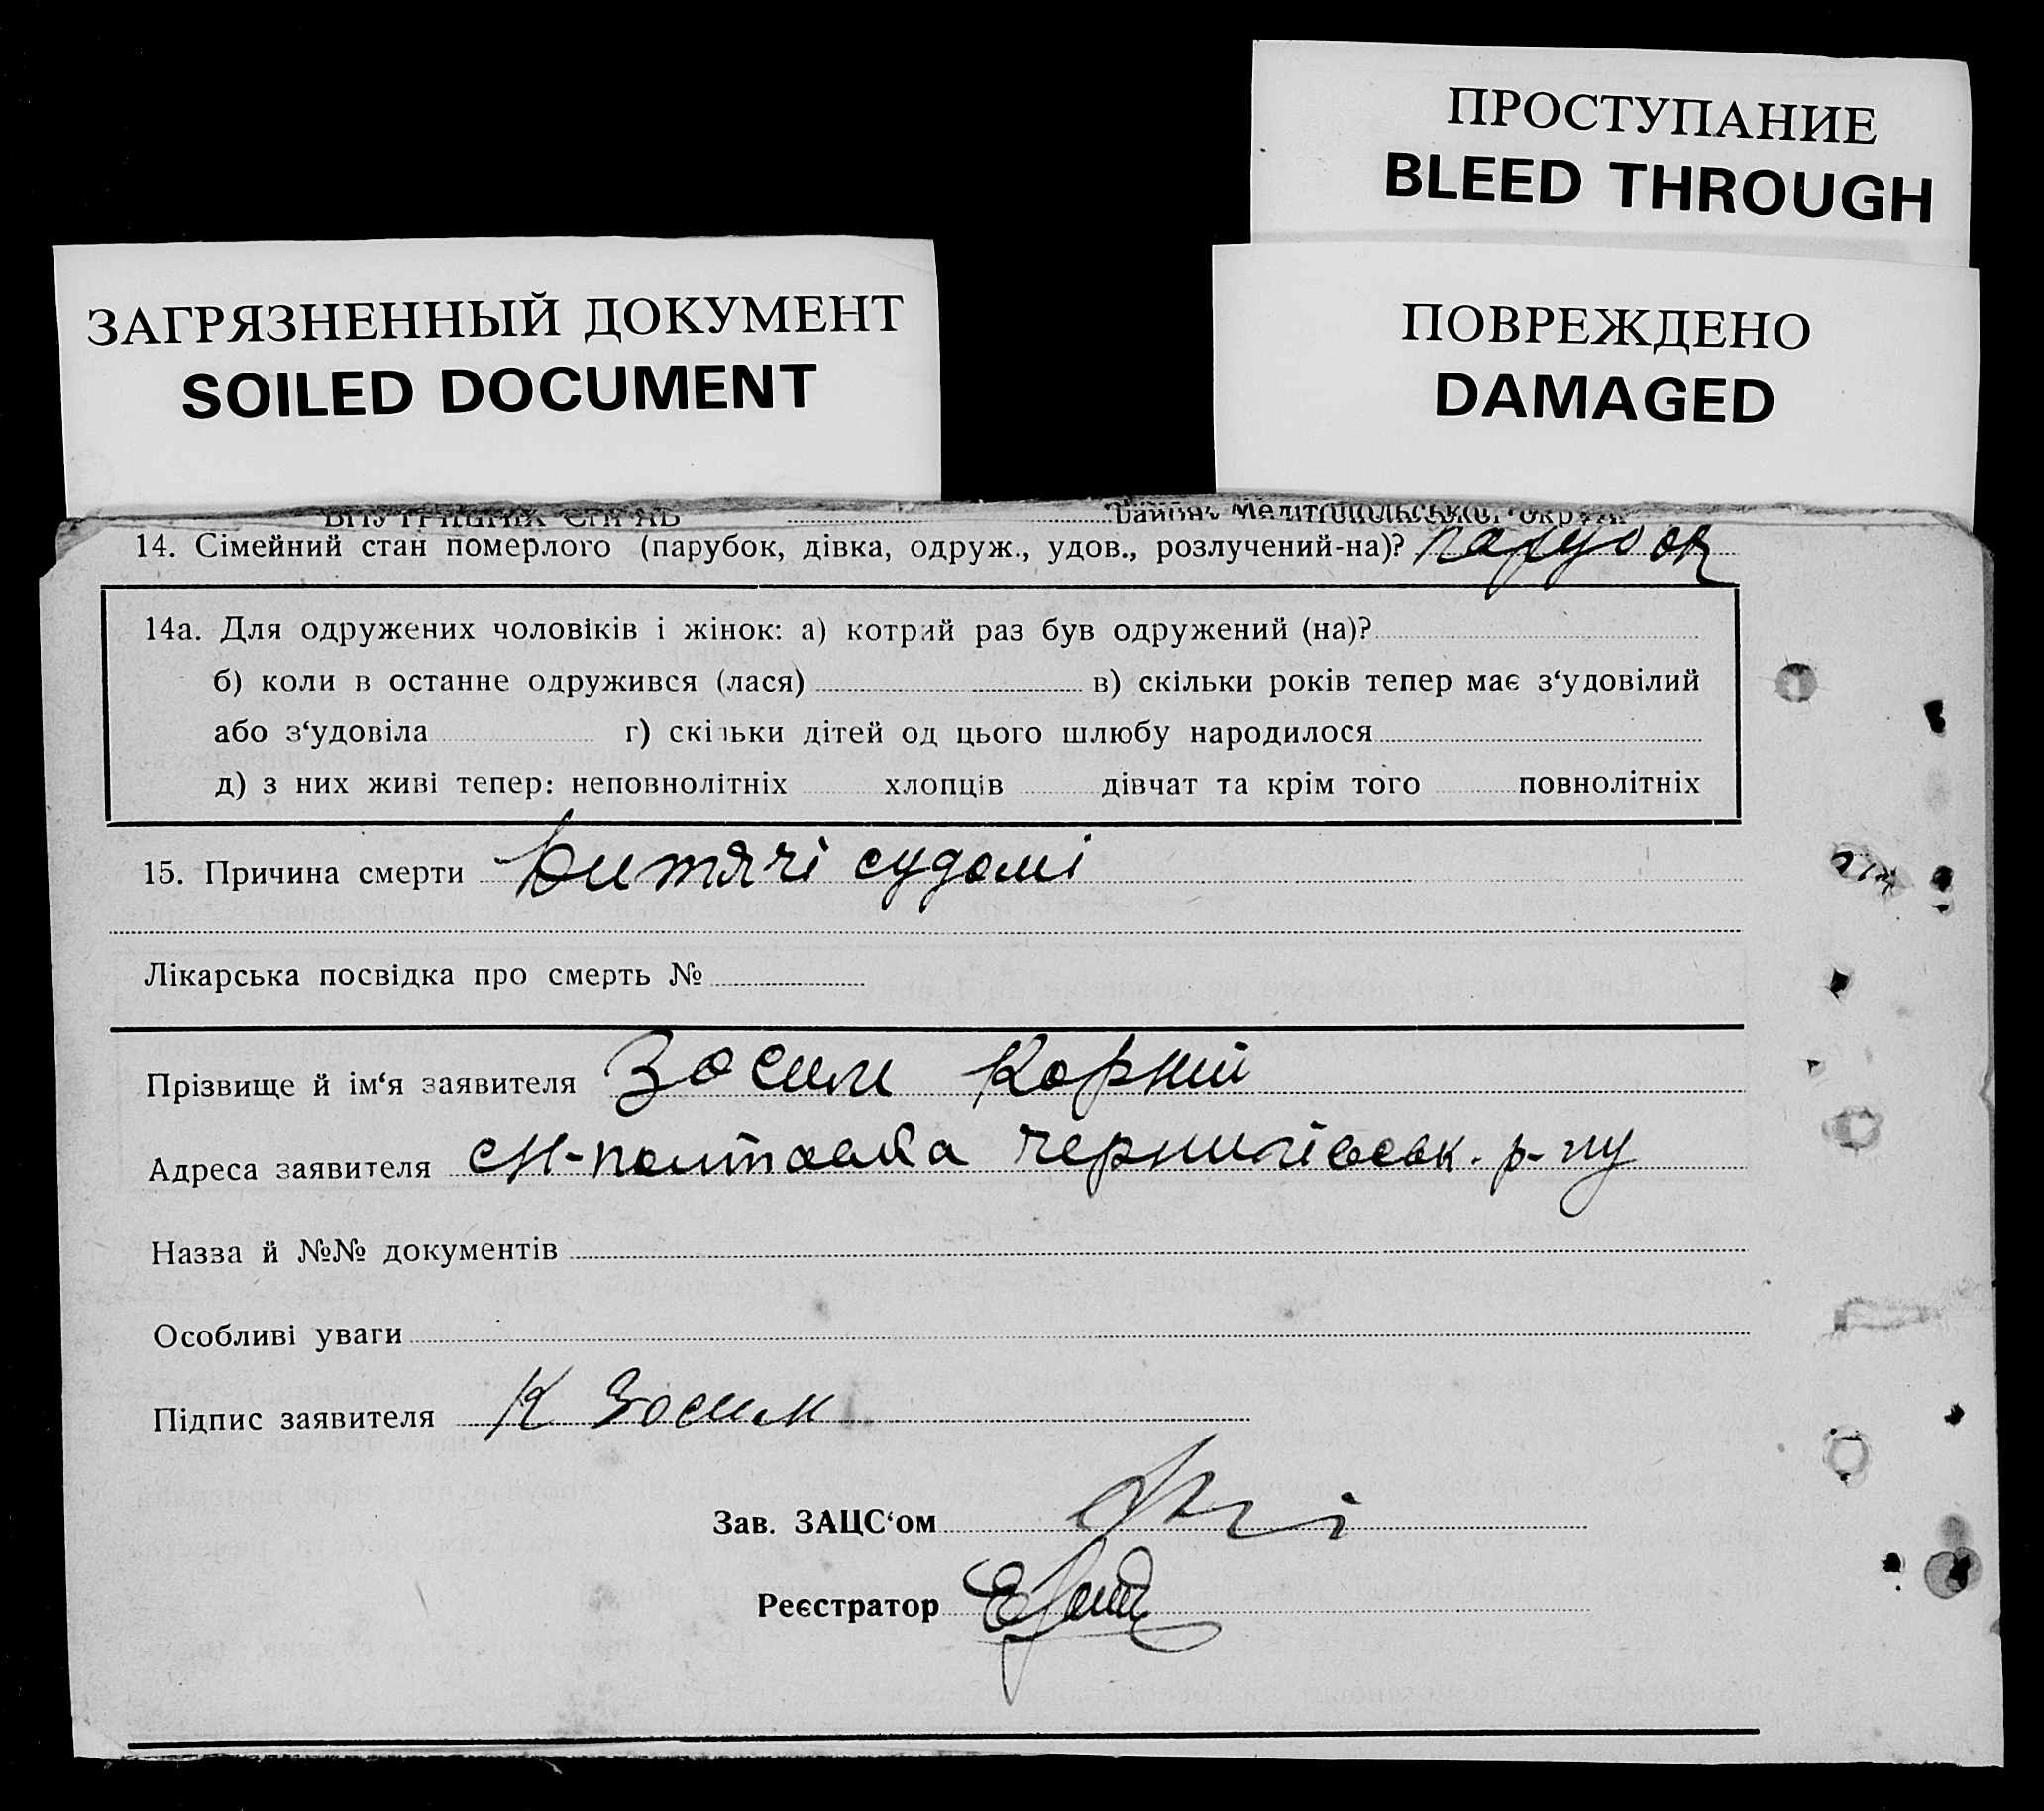 ПРОСТУПАНИЕ
BLEED THROUGH
ЗАГРЯЗНЕННЫЙ ДОКУМЕНТ
SOILED DOCUMENT
ПОВРЕЖДЕНО
DAMAGED
14. Сімейний стан померлого (парубок, дівка, одруж., удов., розлучений-на)? парубок
14а. Для одружених чоловіків і жінок: а) котрий раз був одружений (на)?
б) коли в останне одружився (лася) в) скільки років тепер має з‘удовілий
або з‘удовіла г) скільки дітей од цього шлюбу народилося
д) з них живі тепер: неповнолітніх хлопців дівчат та крім того повнолітніх
15. Причина смерти Дитячі судомі
Лікарська посвідка про смерть №
Прізвище й ім‘я заявителя Зосим Корній
Адреса заявителя с Н-полтавка чернигівськ. р-ну
Назва й №№ документів
Особливі уваги
Підпис заявителя К Зосим
Зав. ЗАЦС‘ом
Реєстратор